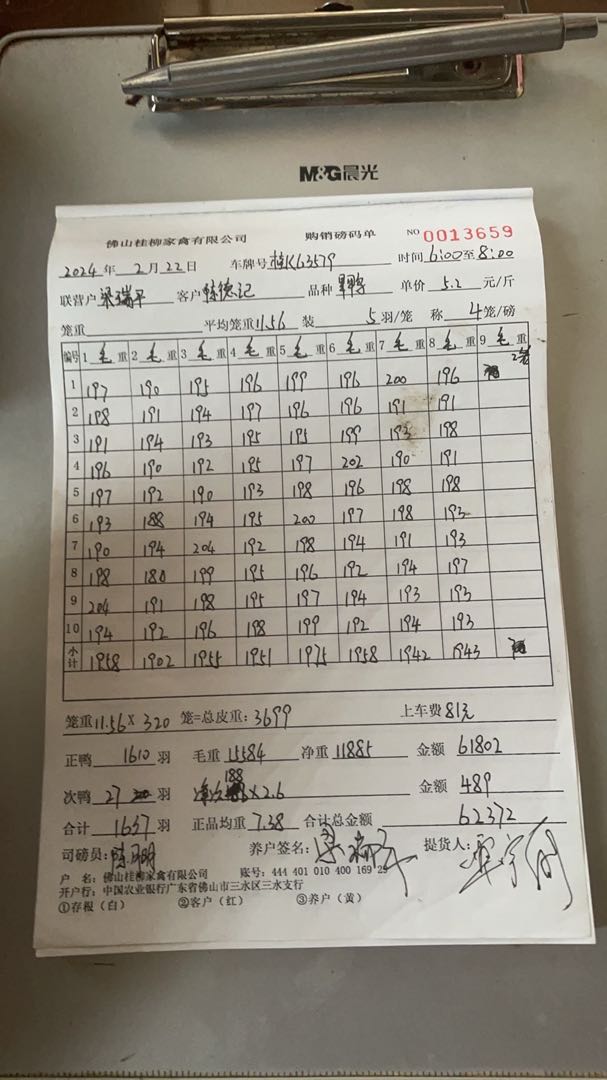 M&G晨光
佛山桂柳家禽有限公司 购销磅码单 NO 0013659
2024年 2月22日 车牌号桂K63579 时间6:00至8:00
联营户 梁瑞平 客户 德记 品种 单价 5.2 元/斤
笼重 平均笼重11.56 装 5 羽/笼 称 4笼/磅
编号 1 毛重 2 毛重 3 毛重 4 毛重 5 毛重 6 毛重 7 毛重 8 毛重 9 毛重
1 197 190 195 196 199 196 200 196
2 198 191 194 197 196 196 191 191
3 191 194 193 195 195 199 193 198
4 196 190 192 195 197 202 190 191
5 197 192 190 193 198 196 198 198
6 193 188 194 195 200 197 198 193
7 190 194 204 192 198 194 191 193
8 198 180 199 195 196 192 194 197
9 204 191 198 195 197 194 193 193
10 194 192 196 198 199 192 194 193
小计 1958 1902 1955 1951 1975 1958 1942 1943
笼重11.56×320 笼=总皮重:3699 上车费81元
正鸭 1610 羽 毛重 15584 净重 11885 金额 61802
次鸭 27 羽 188×2.6 金额 489
合计 1637 羽 正品均重 7.38 合计总金额 62372
司磅员: 养户签名: 提货人:
户 名:佛山桂柳家禽有限公司 账号:444 401 010 400 169 29
开户行:中国农业银行广东省佛山市三水区三水支行
①存根(白) ②客户(红) ③养户(黄)